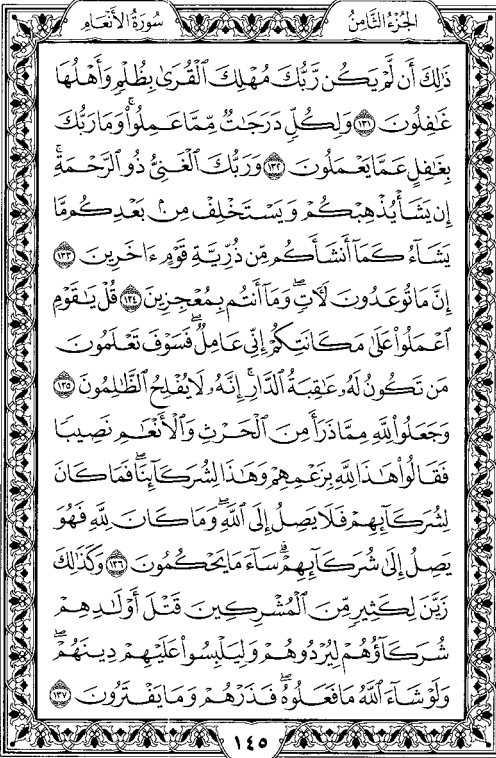 سُورَةُ الأَنْعَامِ
الجُزْءُ الثَّامِنُ
ذَٰلِكَ أَن لَّمْ يَكُن رَّبُّكَ مُهْلِكَ ٱلْقُرَىٰ بِظُلْمٍ وَأَهْلُهَا
غَٰفِلُونَ ١٣١ وَلِكُلٍّ دَرَجَٰتٌ مِّمَّا عَمِلُوا۟ ۚ وَمَا رَبُّكَ
بِغَٰفِلٍ عَمَّا يَعْمَلُونَ ١٣٢ وَرَبُّكَ ٱلْغَنِىُّ ذُو ٱلرَّحْمَةِ ۚ
إِن يَشَأْ يُذْهِبْكُمْ وَيَسْتَخْلِفْ مِنۢ بَعْدِكُم مَّا
يَشَآءُ كَمَآ أَنشَأَكُم مِّن ذُرِّيَّةِ قَوْمٍ ءَاخَرِينَ ١٣٣
إِنَّ مَا تُوعَدُونَ لَءَاتٍ ۖ وَمَآ أَنتُم بِمُعْجِزِينَ ١٣٤ قُلْ يَٰقَوْمِ
ٱعْمَلُوا۟ عَلَىٰ مَكَانَتِكُمْ إِنِّى عَامِلٌ ۖ فَسَوْفَ تَعْلَمُونَ
مَن تَكُونُ لَهُۥ عَٰقِبَةُ ٱلدَّارِ ۗ إِنَّهُۥ لَا يُفْلِحُ ٱلظَّٰلِمُونَ ١٣٥
وَجَعَلُوا۟ لِلَّهِ مِمَّا ذَرَأَ مِنَ ٱلْحَرْثِ وَٱلْأَنْعَٰمِ نَصِيبًا
فَقَالُوا۟ هَٰذَا لِلَّهِ بِزَعْمِهِمْ وَهَٰذَا لِشُرَكَآئِنَا ۖ فَمَا كَانَ
لِشُرَكَآئِهِمْ فَلَا يَصِلُ إِلَى ٱللَّهِ ۖ وَمَا كَانَ لِلَّهِ فَهُوَ
يَصِلُ إِلَىٰ شُرَكَآئِهِمْ ۗ سَآءَ مَا يَحْكُمُونَ ١٣٦ وَكَذَٰلِكَ
زَيَّنَ لِكَثِيرٍ مِّنَ ٱلْمُشْرِكِينَ قَتْلَ أَوْلَٰدِهِمْ
شُرَكَآؤُهُمْ لِيُرْدُوهُمْ وَلِيَلْبِسُوا۟ عَلَيْهِمْ دِينَهُمْ ۖ
وَلَوْ شَآءَ ٱللَّهُ مَا فَعَلُوهُ ۖ فَذَرْهُمْ وَمَا يَفْتَرُونَ ١٣٧
١٤٥